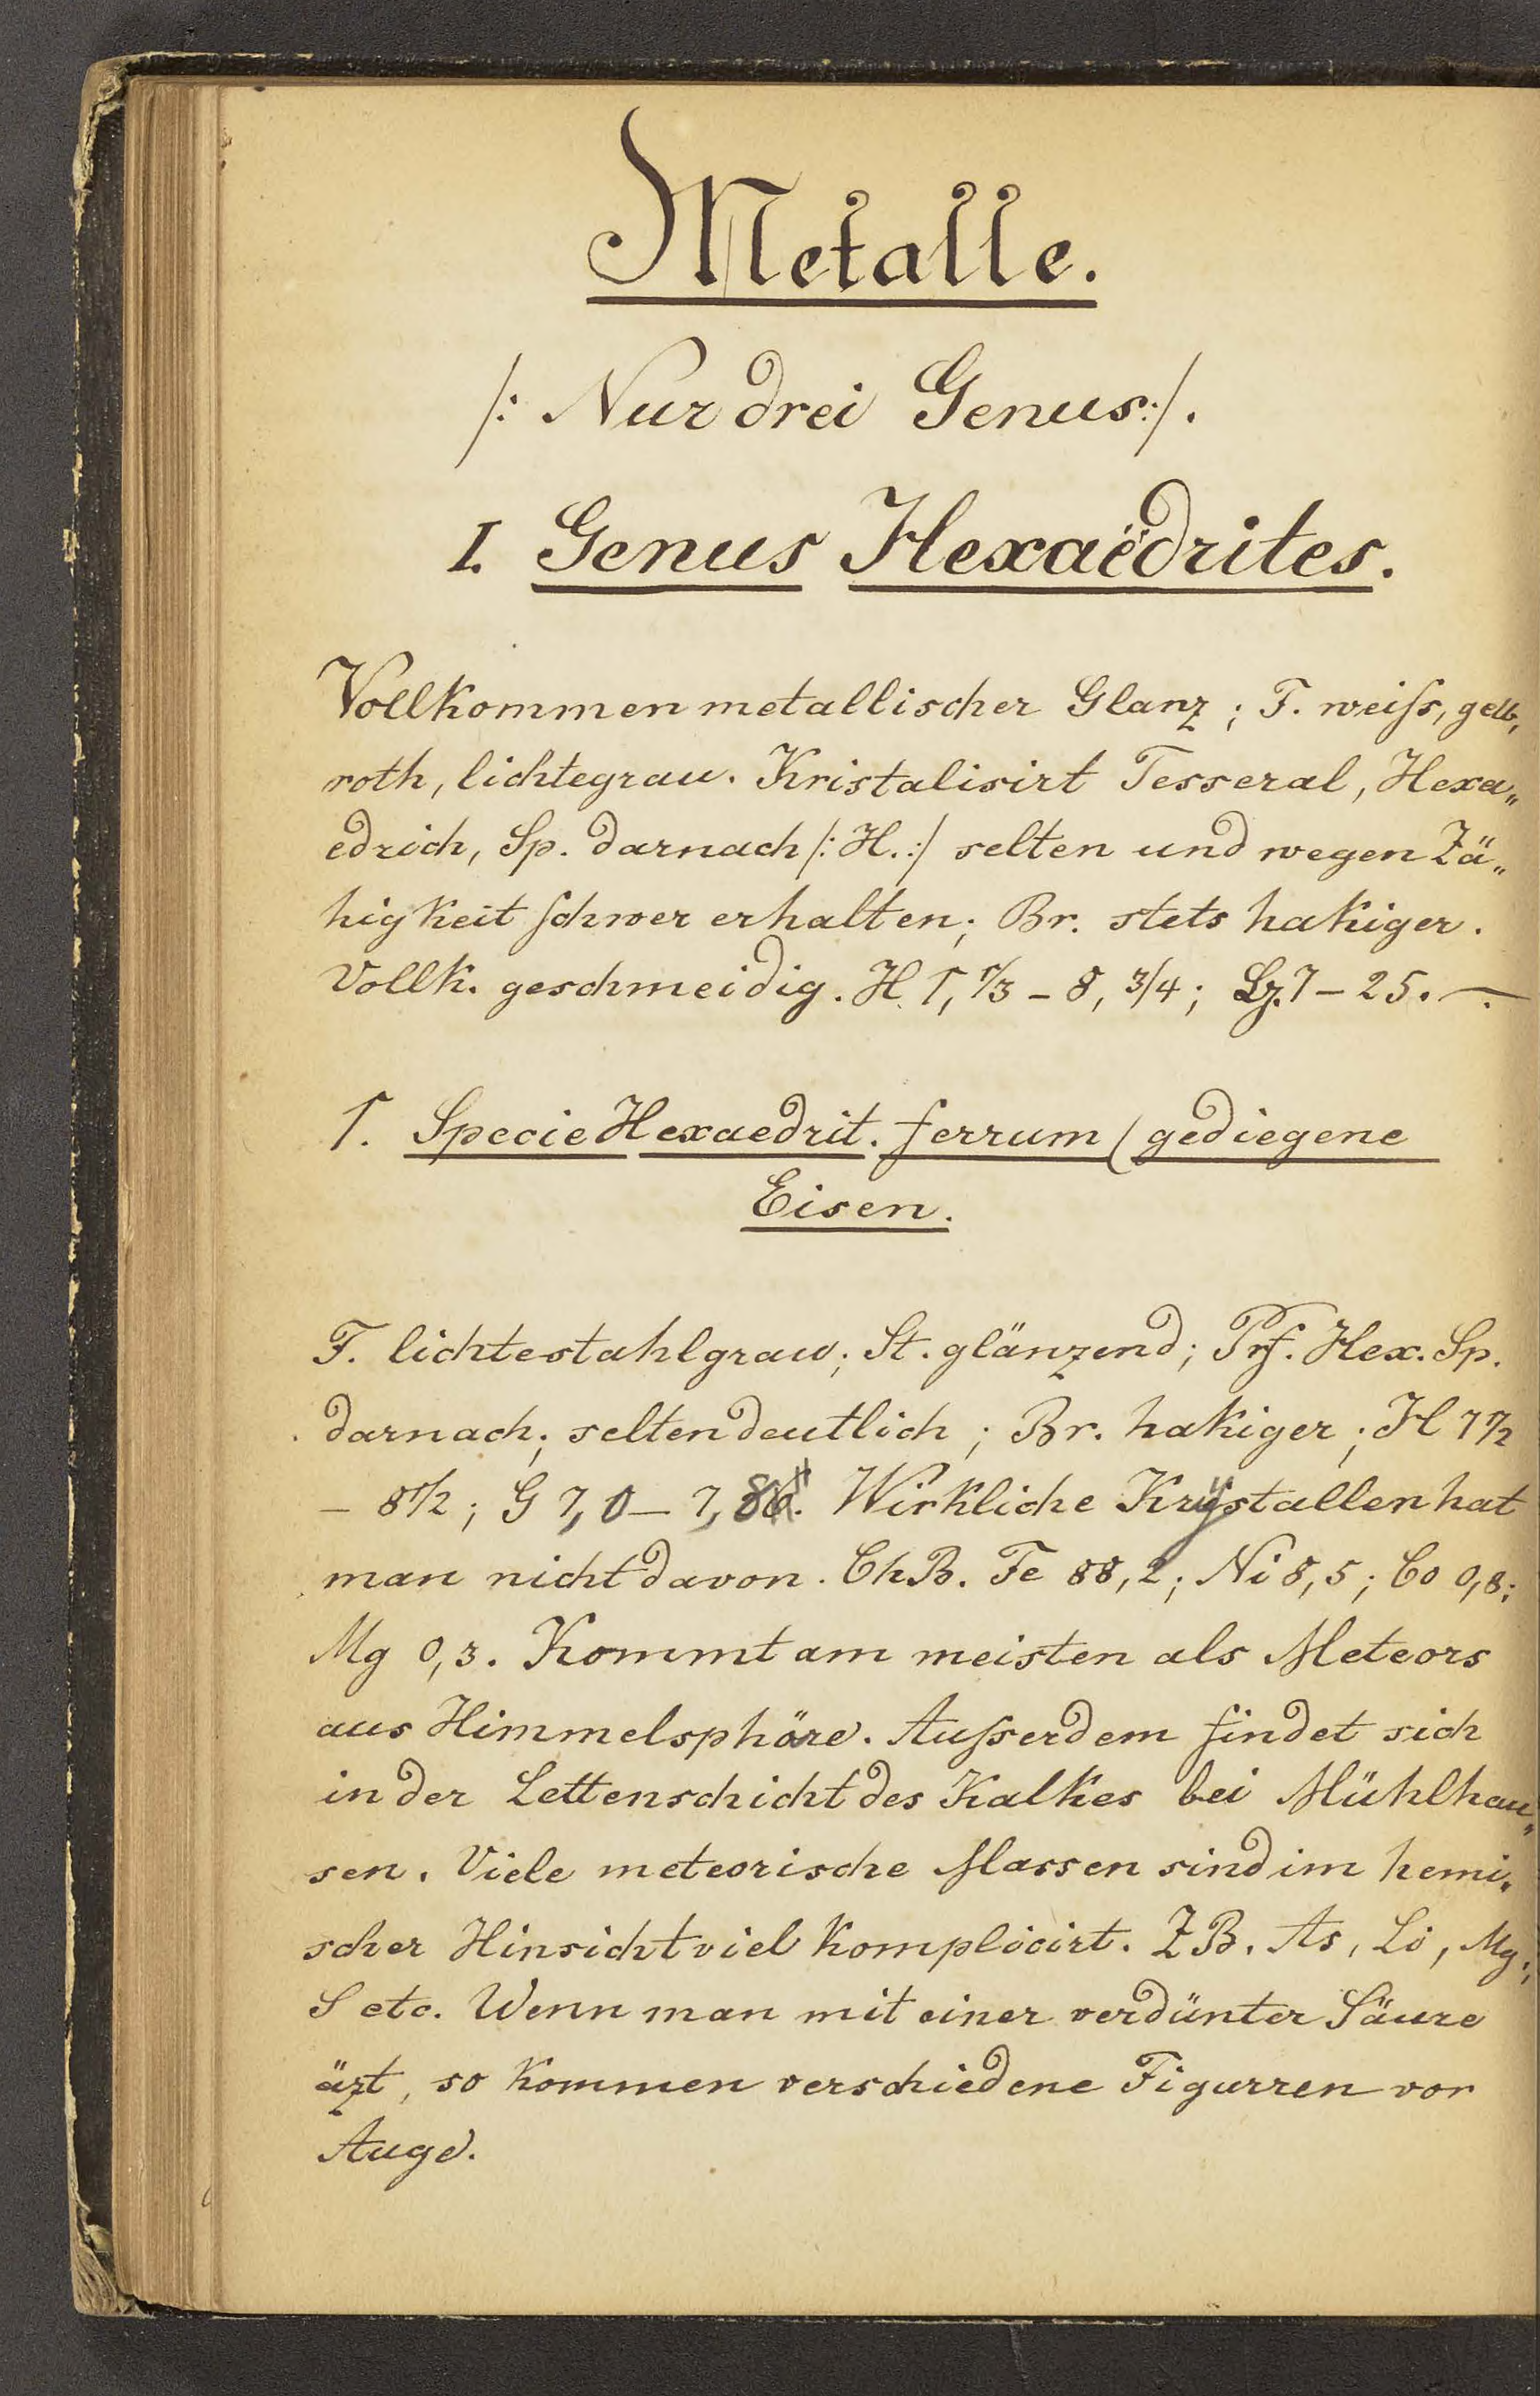 Metalle.
/: Nur drei Genus :/.
I. Genus Hexaëdrites.
Vollkommen metallischer Glanz; F. weiſs, gelb,
roth, lichtegrau. Kristalisirt Tesseral, Hexa„
edrich, Sp. darnach /: H. :/ selten und wegen Zä„
higkeit schwer erhalten; Br. stets hakiger.
Vollk. geschmeidig. H. 1, 1/3 – 8, 3/4; Lg. 7 – 25. —.
1. Specie Hexaedrit. ferrum (gediegene
Eisen.
F. lichtestahlgrau; St. glänzend; Prf. Hex. Sp.
darnach; selten deutlich; Br. hakiger; H 7 1/2
– 8 1/2; G 7,0 – 7,8. Wirkliche Krystallen hat
man nicht davon. ChB. Fe 88,2; Ni 8,5; Co 0,8;
Mg 0,3. Kommt am meisten als Meteors
aus Himmelsphöre. Auſserdem findet sich
in der Lettenschicht des Kalkes bei Mühlhau„
sen. Viele meteorische Massen sind im hemi„
scher Hinsicht viel komplicirt. Z B. As, Li, Mg.;
S etc. Wenn man mit einer verdünter Säure
äzt, so kommen verschiedene Figurren vor
Auge.